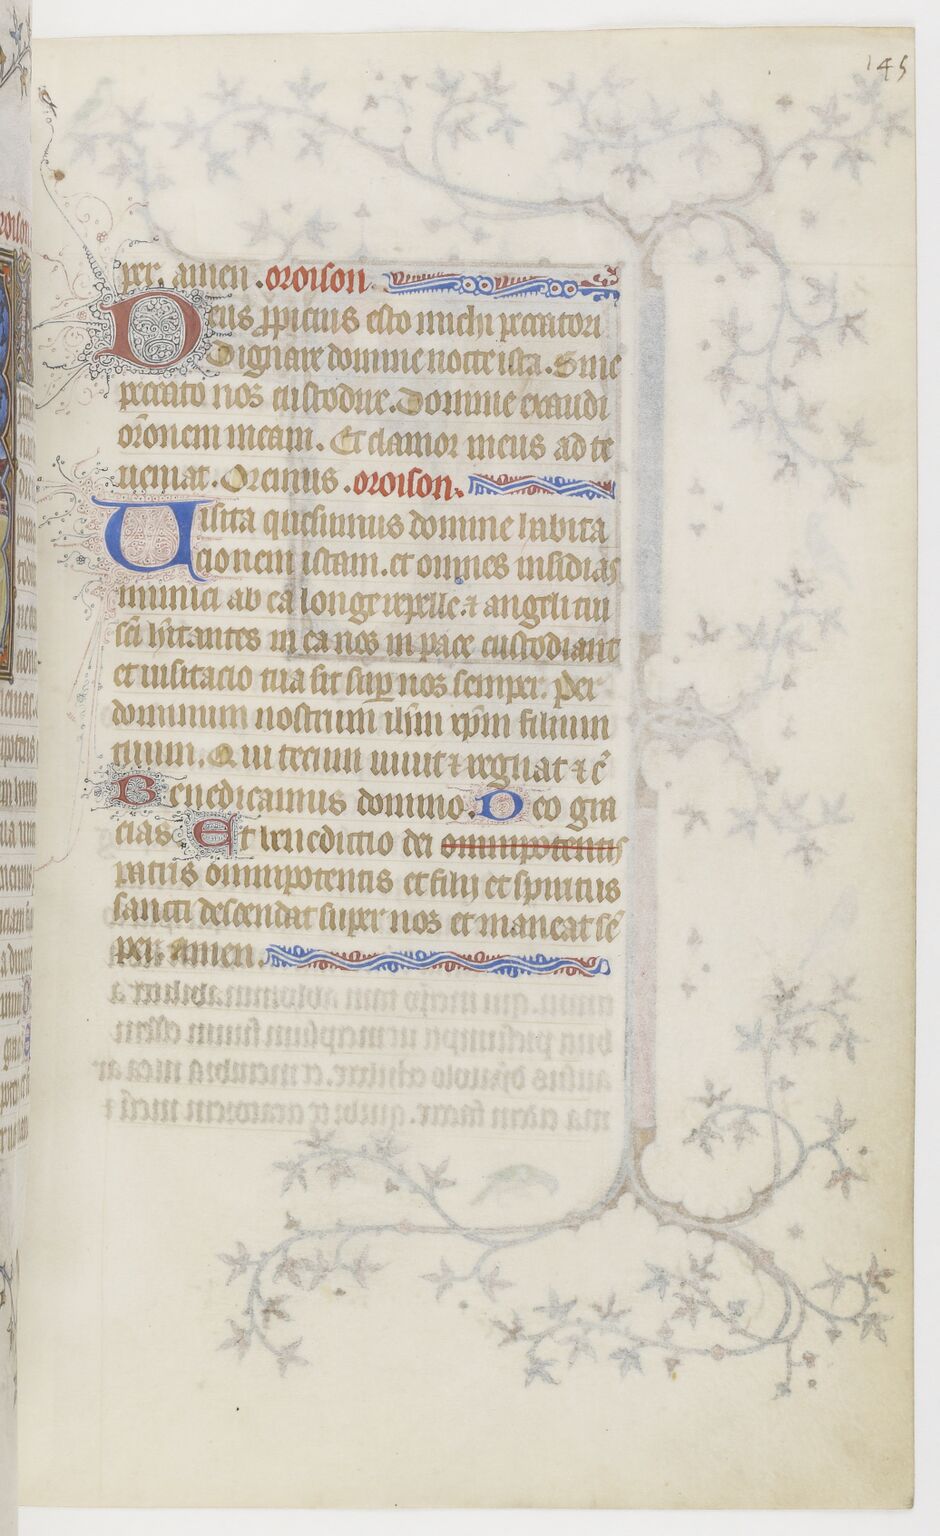 145
per. amen . oroison
Deus ꝓpicius esto michi peccatori
Dignare domine nocte ista. Sine
peccato nos custodire. Domine exaudi
or̄onem meam. Et clamor meus ad te
ueniat. Oremus . oroison.
Uisita quesumus domine habita
cionem istam. et omnes insidias
inimici ab ea longe repelle. ⁊ angeli tui
sc̄i h̄itantes in ea nos in pace custodiant
et uisitacio tua sit suꝑ nos semper. Per
dominum nostrum ih̄m xp̄m filium
tuum. Qui tecum uiuit ⁊ regnat ⁊ c̄
Benedicamus domino. Deo gra
cias. Et benedictio dei omnipotentis
patris omnipotentis et filij et spiritus
sancti descendat super nos et maneat sē
per. Amen.